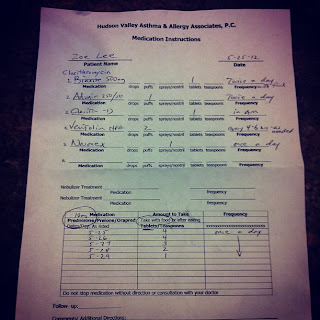 Hudson Valley Asthma & Allergy Associates, P.C.
Medication Instructions
Zoe Lee 5-25-12
Patient Name Date
1. 500mg 1 Twice a day
Medication drops puffs sprays/nostril tablets teaspoons Frequency
2. Advair 250/50 1 Twice a day
Medication drops puffs sprays/nostril tablets teaspoons Frequency
3. in am
Medication drops puffs sprays/nostril tablets teaspoons Frequency
4. Ventolin HFA 2 needed
Medication drops puffs sprays/nostril tablets teaspoons Frequency
5. 1 once a day
Medication drops puffs sprays/nostril tablets teaspoons Frequency
6.
Nebulizer Treatment
Medication Frequency
Nebulizer Treatment
Medication Frequency
10mg Medication Amount to Take Frequency
Prednisone/Prelone/Orapred Take with food or after eating
As listed Tablets/Teaspoons
5-25 4 once a day
5-26
5-27 3
5-28 2
5-29 1
Do not stop medication without direction or consultation with your doctor
Follow up:
Comments/ Additional Directions: